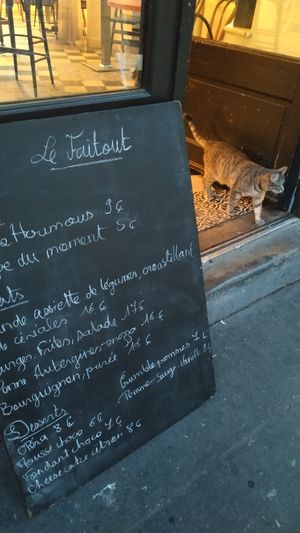 Le Faitout
Houmous 9€
du moment 5€
assiette de légumes, croustillant
de céréales 16€
frites, salade 17€
Aubergines 16€
Bourguignon, purée 16€
Desserts
8€
Mousse choco 6€
Fondant choco 7€
Cheese cake citron 8€
Crumble pommes 7€
Vanille 8€